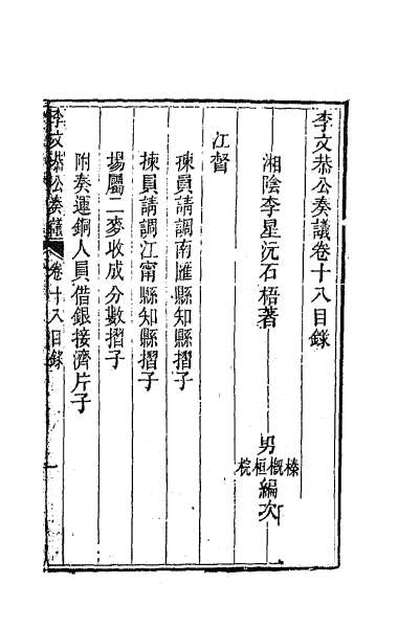 李文恭公奏議卷十八目錄
湘陰李星沅石梧著
男榛概桓梡編次
江督
揀員請調南匯縣知縣摺子
揀員請調江甯縣知縣摺子
揚屬二麥收成分數摺子
附奏運銅人員借銀接濟片子
李文恭公奏議 卷十八目錄 一